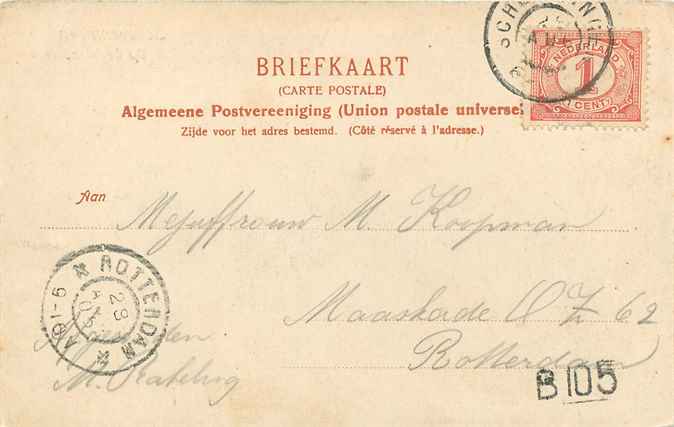 BRIEFKAART
(CARTE POSTALE)
Algemeene Postvereeniging (Union postale universe
Zijde voor het adres bestemd. (Côté réservé à l'adresse.)
NEDERLAND
1
CENT
Aan
Mejuffrouw M. Koopman
Maaskade OZ 62
Rotterdam
ROTTERDAM
B 105